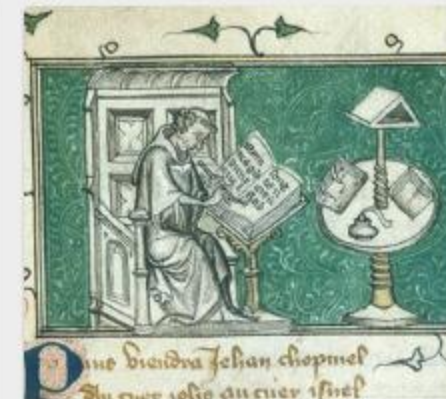 Puis viendra Jehan chopinel
Au cuer iolis au cuer isnel